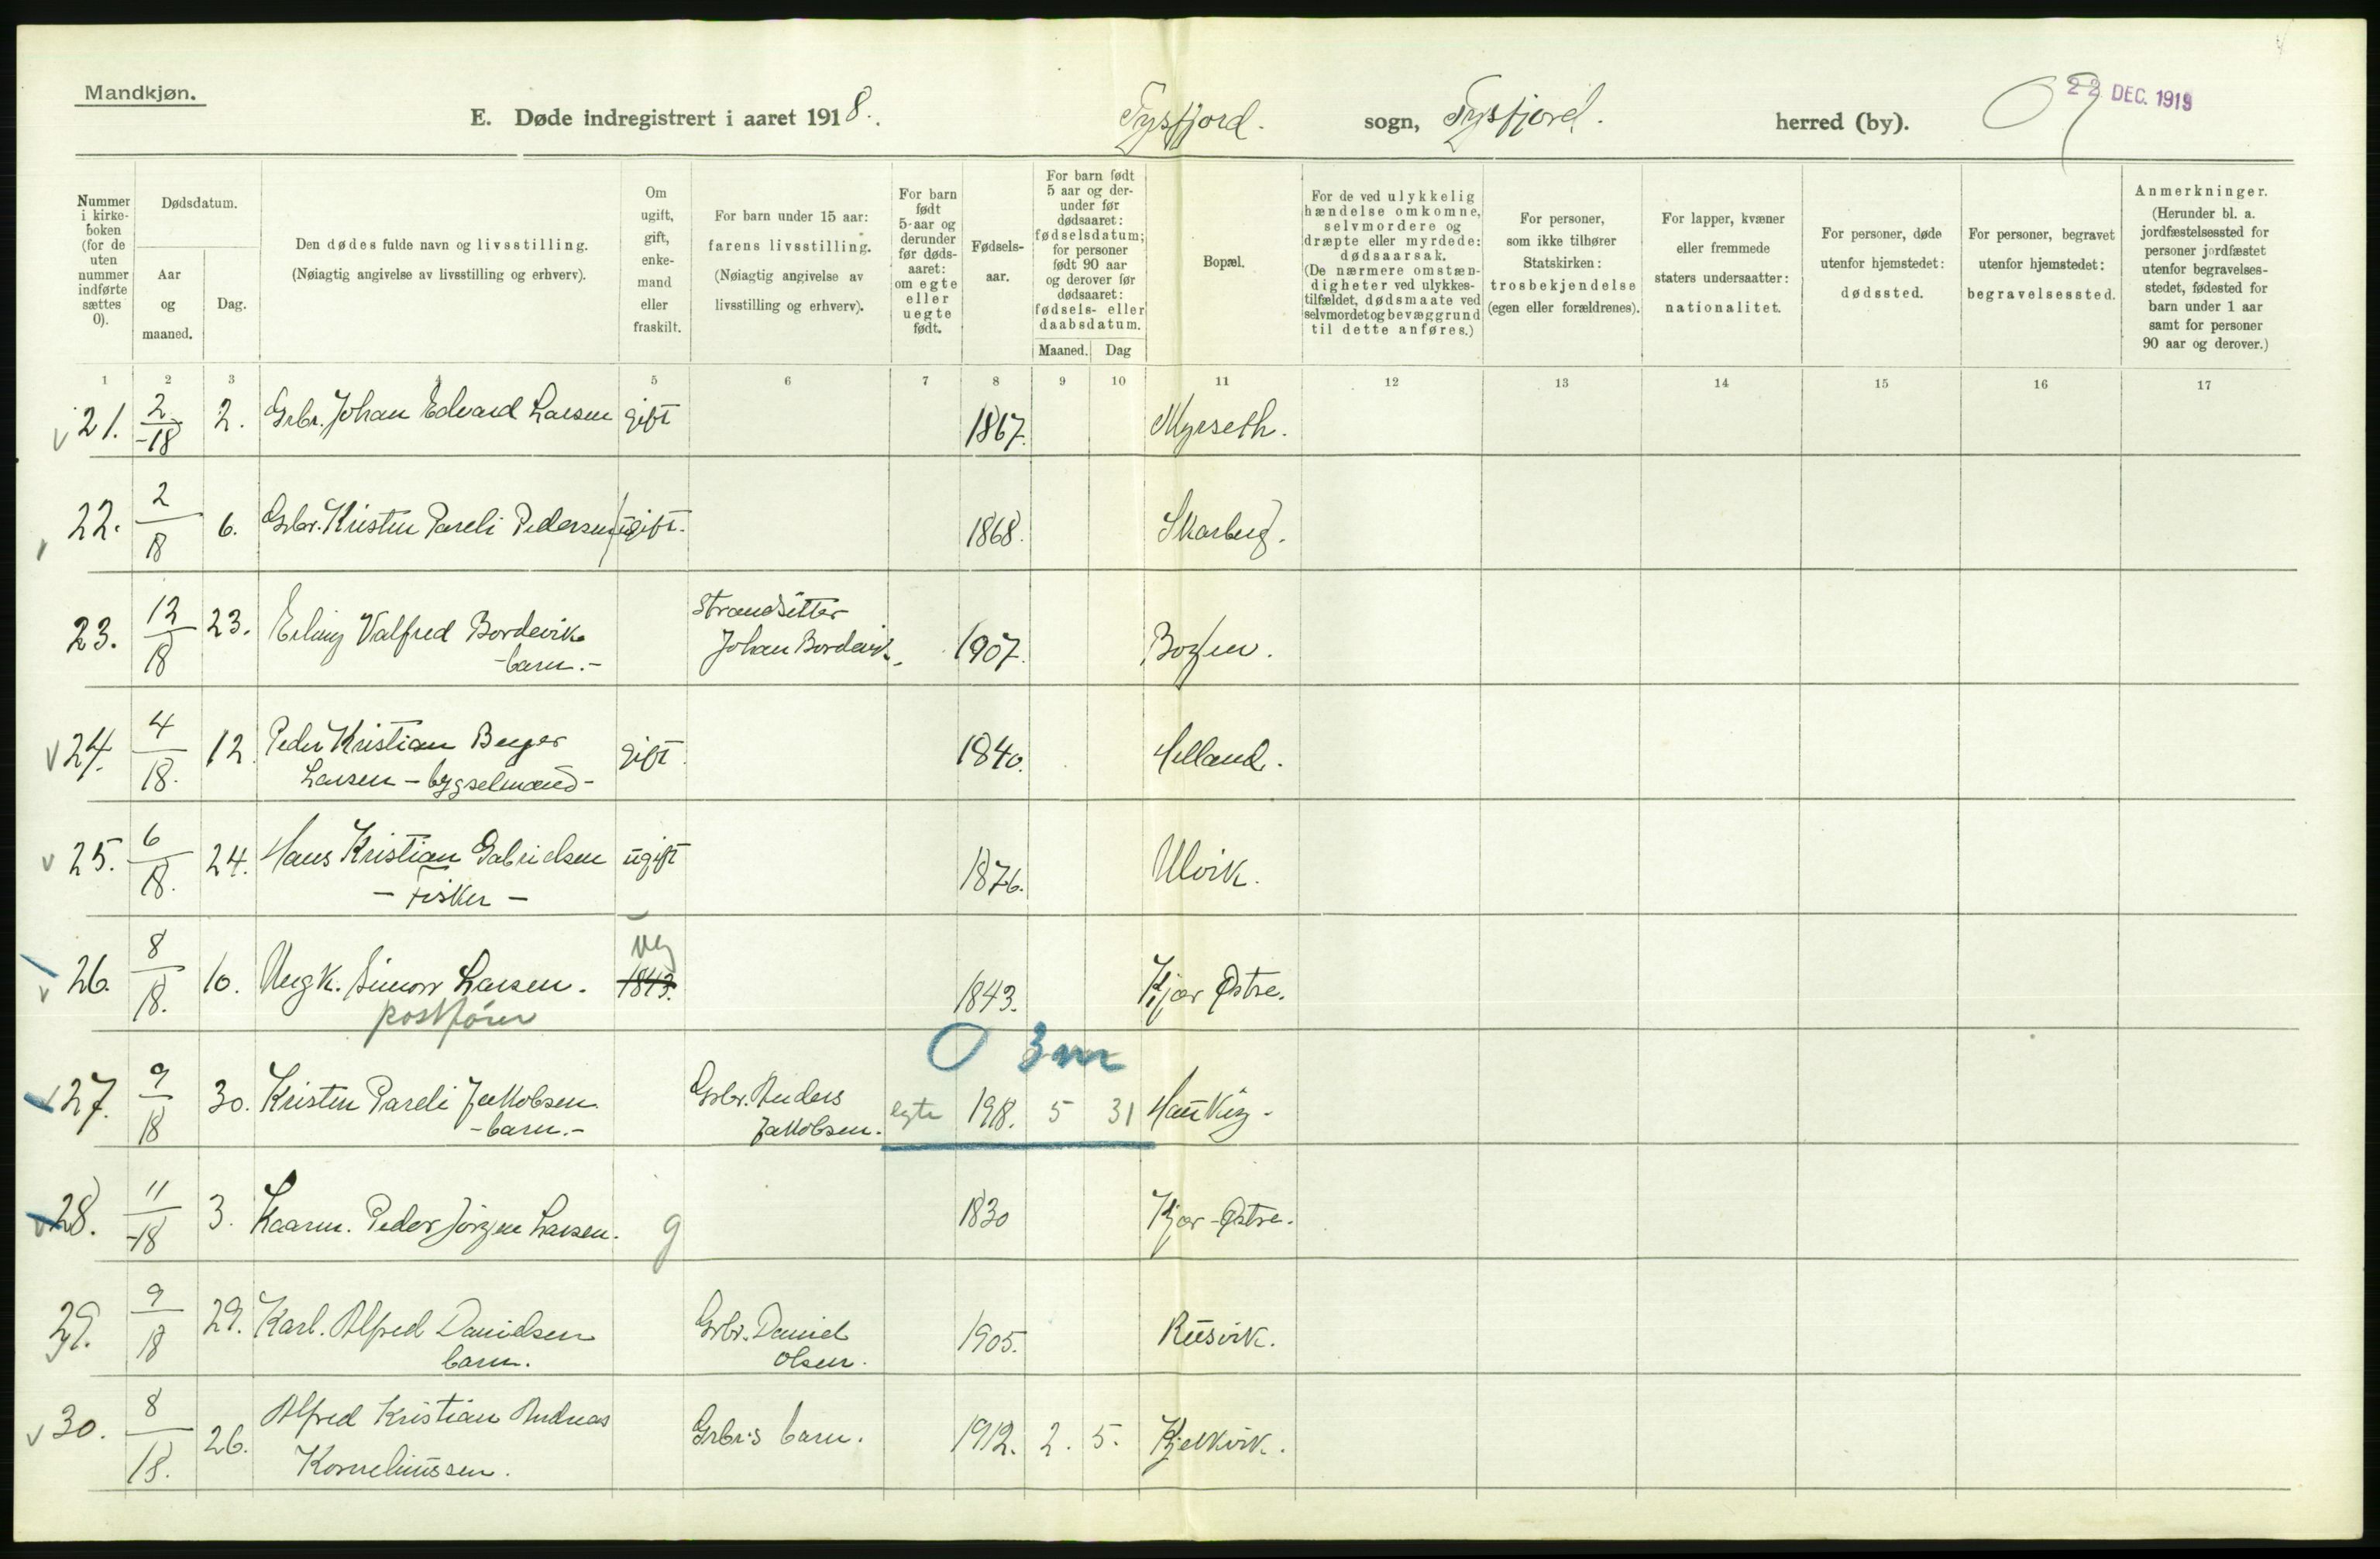 Mandkjøn.
E. Døde indregistrert i aaret 1918. Tysfjord. sogn, Tysfjord. herred (by).
22 DEC. 1919
Nummer i kirkeboken (for de uten nummer indførte sættes 0).
Dødsdatum.
Aar og maaned.
Dag.
Den dødes fulde navn og livsstilling.
(Nøiagtig angivelse av livsstilling og erhverv).
Om ugift, gift, enkemand eller fraskilt.
For barn under 15 aar: farens livsstilling.
(Nøiagtig angivelse av livsstilling og erhverv).
For barn født 5 aar og derunder før dødsaaret: om egte eller uegte født.
Fødselsaar.
For barn født 5 aar og derunder før dødsaaret: fødselsdatum; for personer født 90 aar og derover før dødsaaret: fødsels- eller daabsdatum.
Maaned. Dag
Bopæl.
For de ved ulykkelig hændelse omkomne, selvmordere og dræpte eller myrdede: dødsaarsak.
(De nærmere omstændigheter ved ulykkestilfældet, dødsmaate ved selvmordet og bevæggrund til dette anføres.)
For personer, som ikke tilhører Statskirken: trosbekjendelse (egen eller forældrenes).
For lapper, kvæner eller fremmede staters undersaatter: nationalitet.
For personer, døde utenfor hjemstedet: dødssted.
For personer, begravet utenfor hjemstedet: begravelsessted.
Anmerkninger.
(Herunder bl. a. jordfæstelsessted for personer jordfæstet utenfor begravelsesstedet, fødested for barn under 1 aar samt for personer 90 aar og derover.)
1 2 3 4 5 6 7 8 9 10 11 12 13 14 15 16 17
21. 2/-18 2. Grbr. Johan Edvard Larsen gift 1867. Myrseth.
22. 2/18 6. Grbr. Kristen Pareli Pedersen ugift. 1868. Skarberg.
23. 12/18 23. Erling Valfred Bordevik Strandsitter 1907. Bogen.
-barn.- Johan Bordevik.
24. 4/18. 12. Peder Kristian Berger gift 1840. Helland.
Larsen - bygselmand -
25. 6/18. 24. Hans Kristian Gabrielsen ugift 1876. Ulvik.
- Fisker -
26. 8/18. 10. Ungk. Simon Larsen. ug 1843. 1843. Kjær Østre.
postfører
O 3m
27. 9/18 30. Kristen Pareli Jakobsen Grbr. Anders egte 1918. 5 31
-barn.- Jakobsen.
28. 11/-18 3. Kaarm. Peder Jörgen Larsen. g 1830 Kjær-Østre.
29. 9/18 29. Karl. Alfred Danielsen Grbr. Daniel 1905. Rusvik.
barn. Olsen.
30. 8/18. 26. Alfred Kristian Andreas Grbr's barn. 1912. 2. 5. Kjelkvik.
Korneliussen.